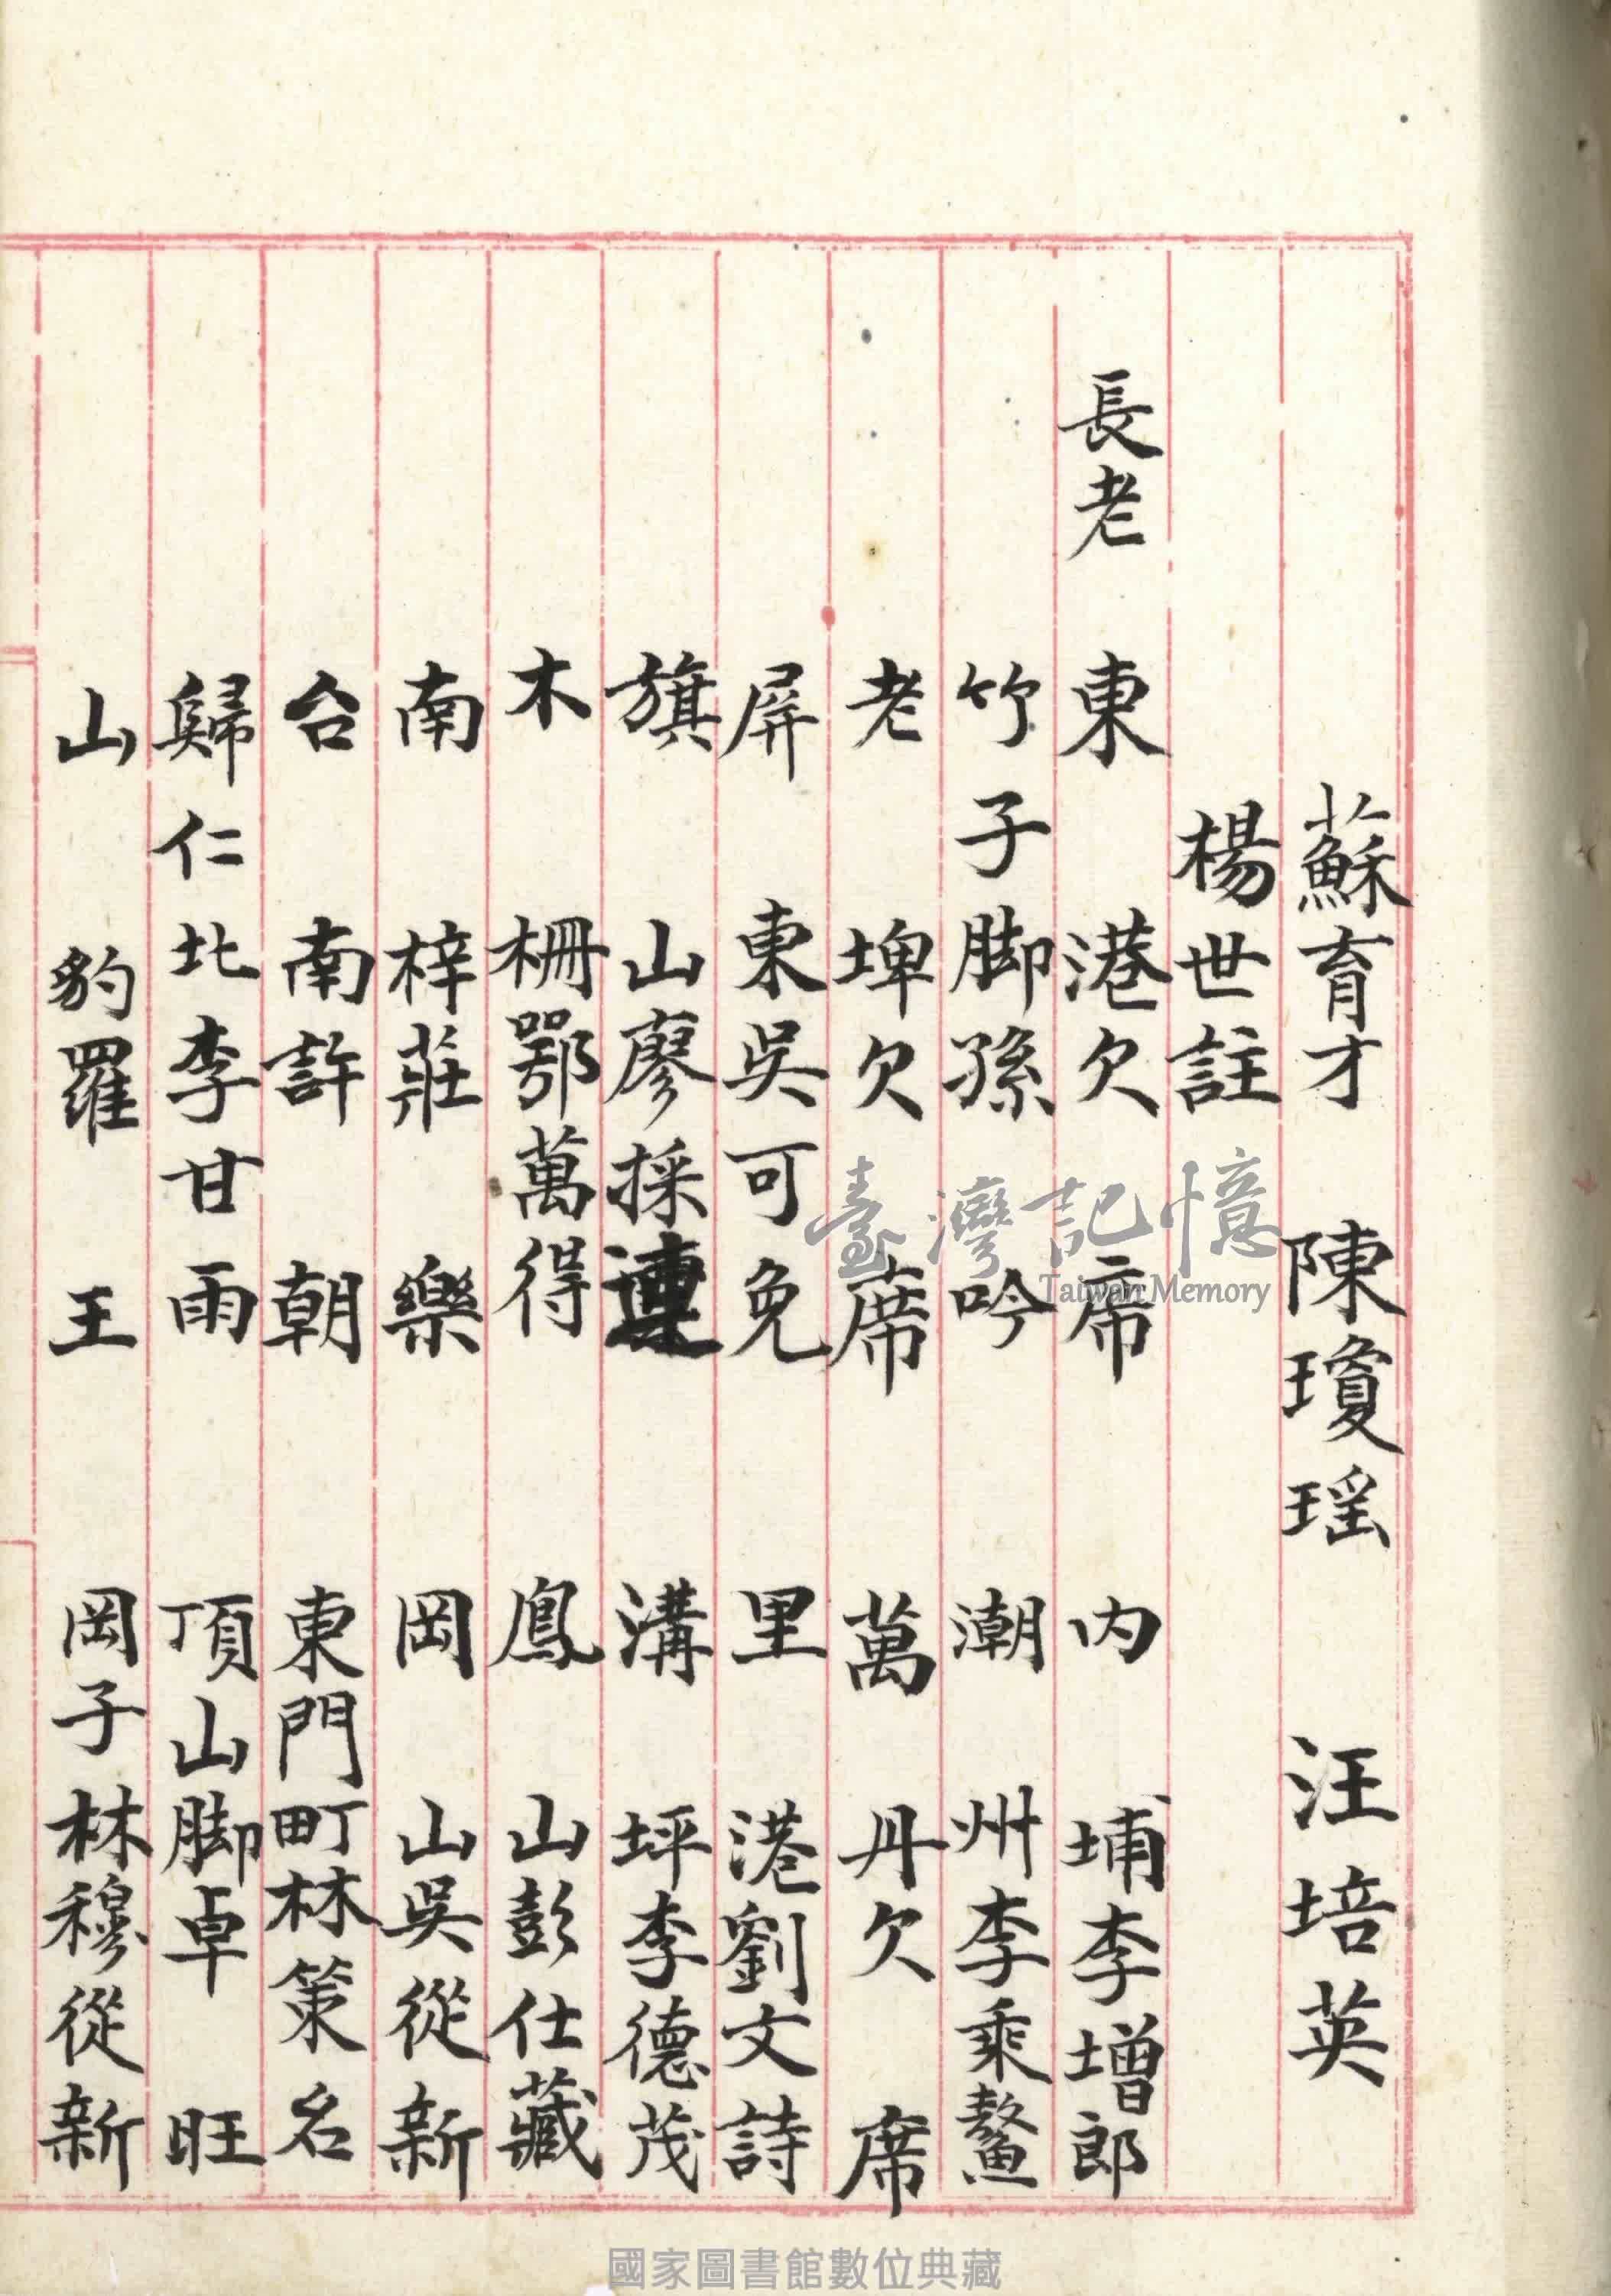 蘇育才 陳瓊瑤 汪培英
楊世註
長老 東港欠席 內埔李增郎
竹子脚孫吟 潮州李乘鰲
老埤欠席 萬丹欠席
屏東吳可免 里港劉文詩
旗山廖採連 溝坪李德茂
木柵鄂萬得 鳳山彭仕藏
南梓莊樂 岡山吳從新
台南許朝 東門町林策名
歸仁北李甘雨 頂山脚卓旺
山豹羅王 岡子林穆從新
臺灣記憶
Taiwan Memory
國家圖書館數位典藏